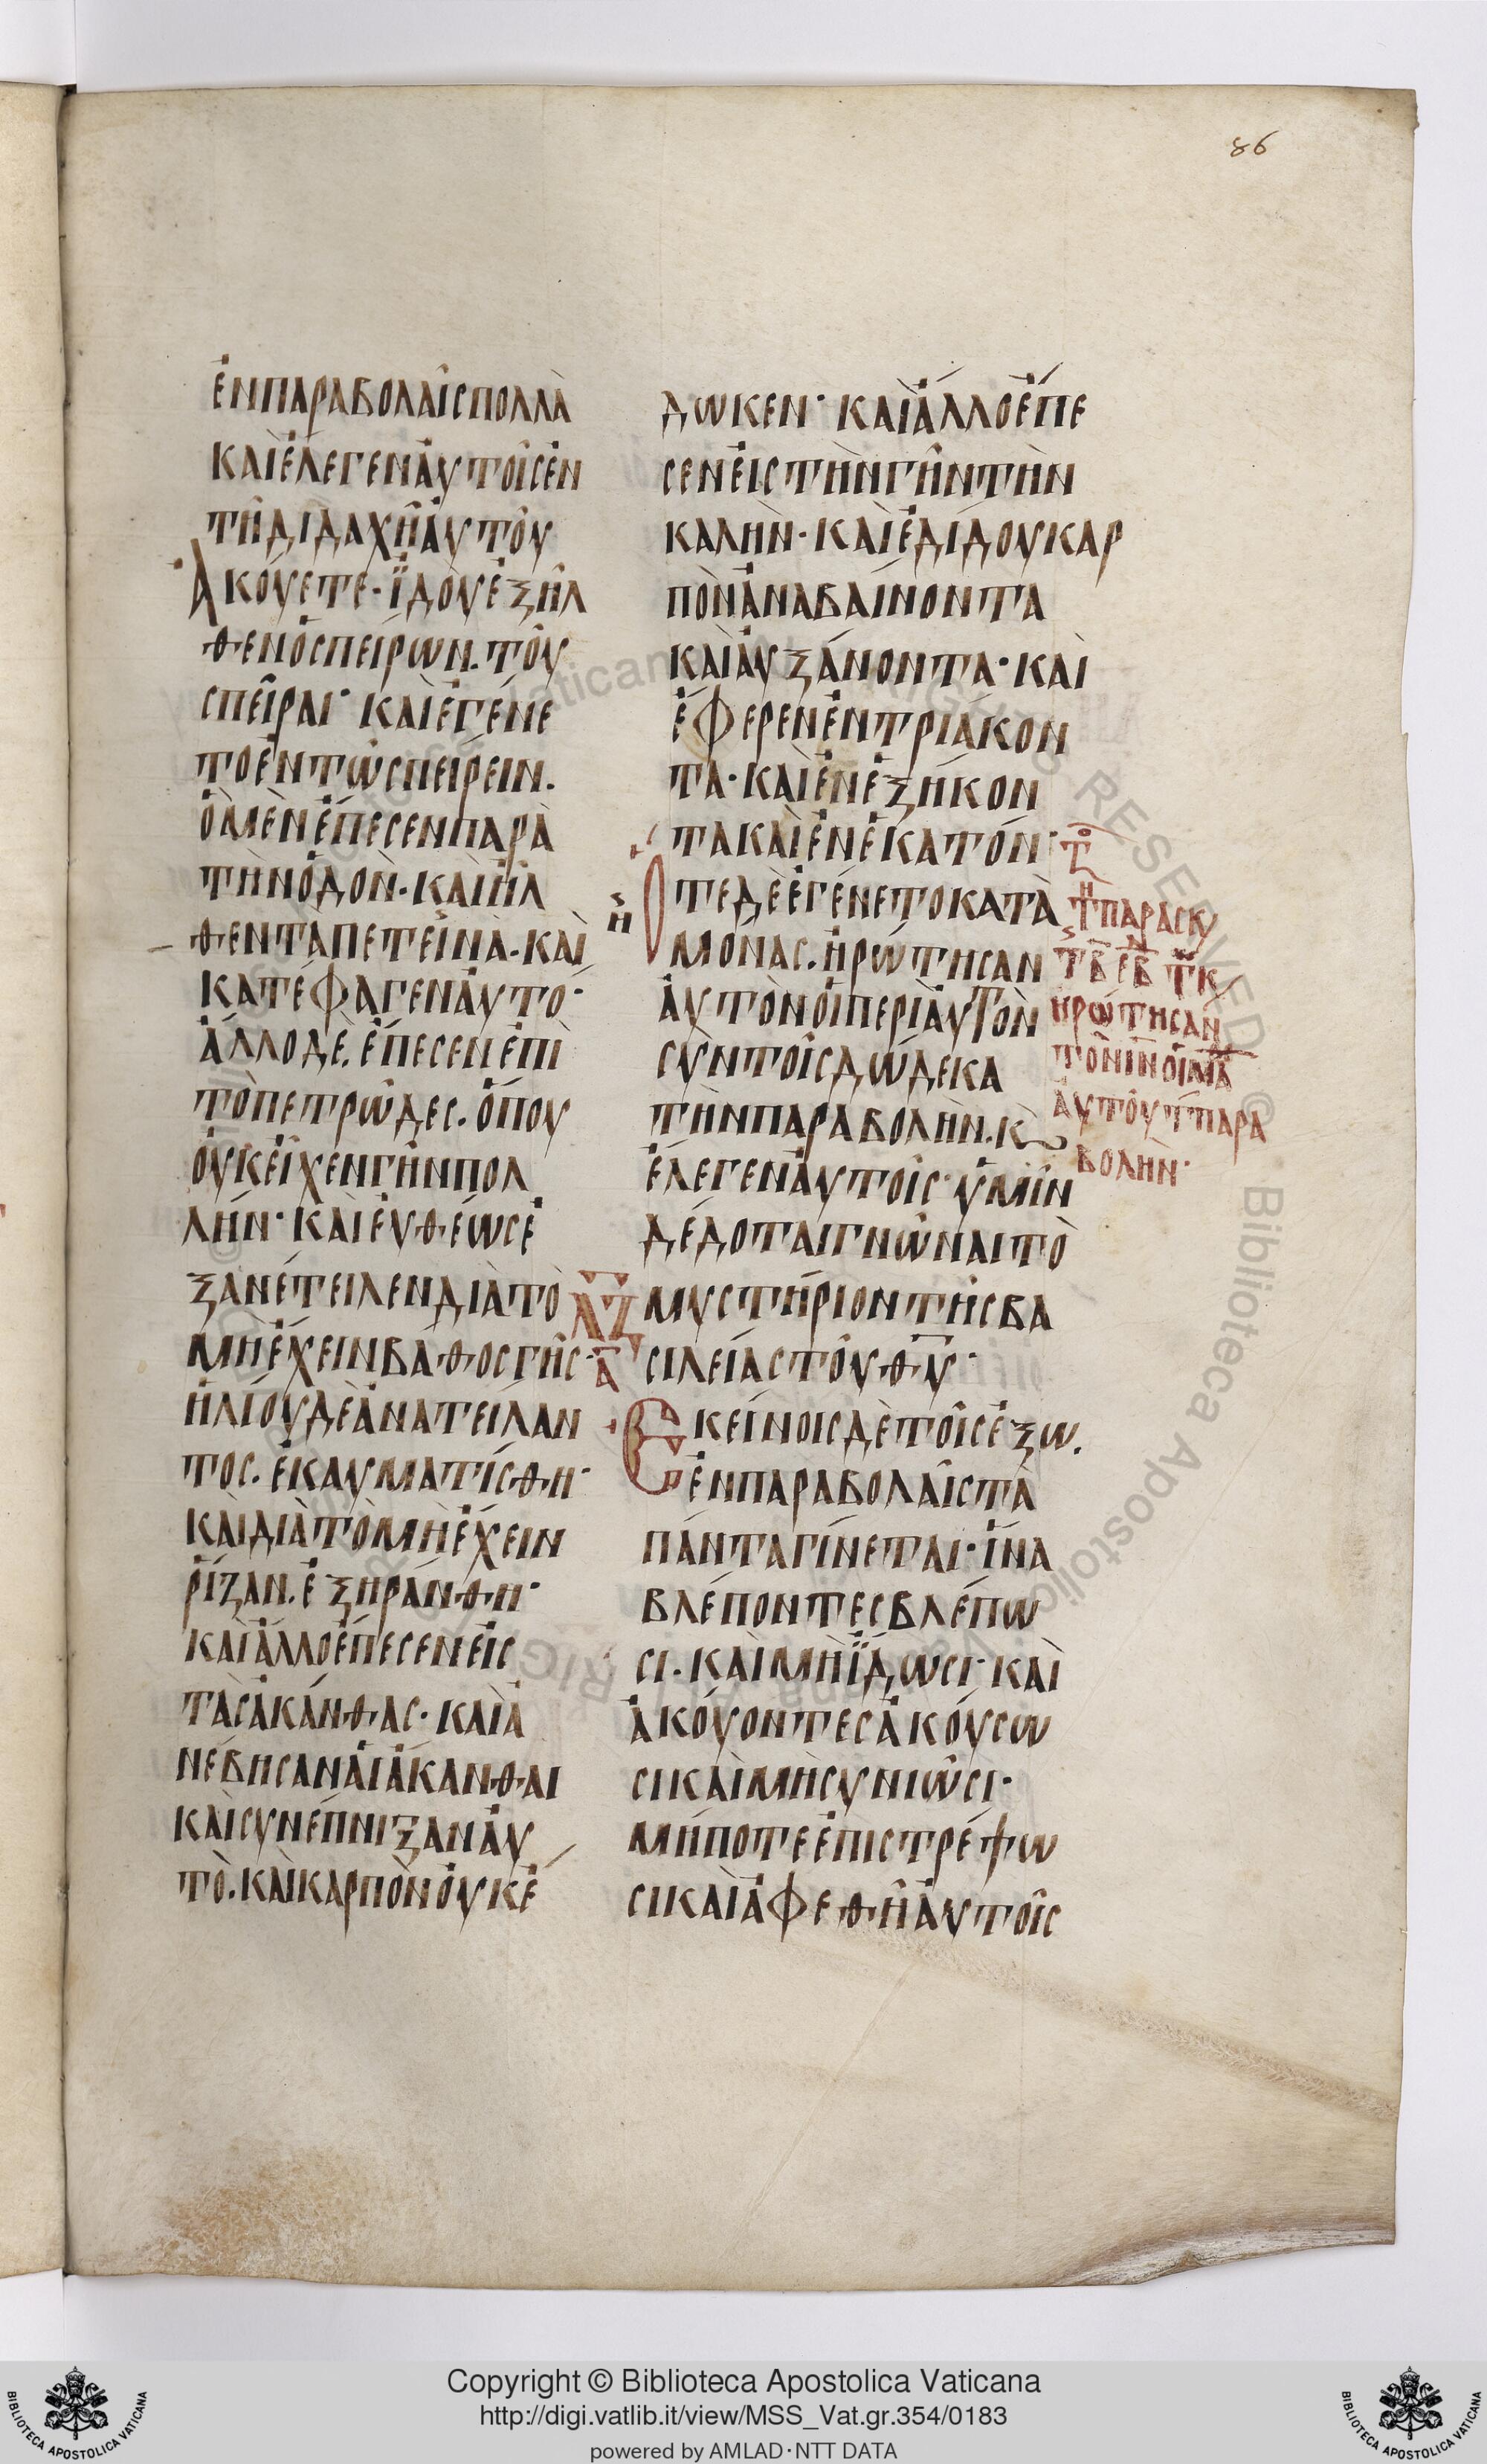 86
ἐνπαραβολαῖςπολλὰ
καὶἔλεγεναὐτοῖςἐν
τῆδιδαχῆαὐτοῦ
Ἀκούετε· ἵδοὺἐξῆλ
θενὁσπείρων. τοῦ
σπεῖραι· καὶἐγένε
τοἐντῶσπείρειν.
ὃμὲνἔπεσενπαρὰ
τὴνὁδὸν· καὶἦλ
θεντὰπετεῖνὰ· καὶ
κατέφαγεναὐτό·
ἄλλοδὲ. ἔπεσενἐπὶ
τὸπετρῶδες. ὅπου
οὐκεἶχενγῆνπολ
λήν· καὶεὐθέωςἐ
ξανέτειλενδιὰτὸ
μὴἔχεινβάθοςγῆς·
ἡλίουδὲἀνατείλαν
τος. ἐκαυματίσθη·
καὶδιὰτὸμὴἔχειν
ῥίζαν. ἐξηράνθη·
καὶἄλλοἔπεσενεἰς
τὰςἀκάνθας· καὶἀ
νέβησαναἱἄκανθαι
καὶσυνέπνιξαναὐ
τὸ. καὶκαρπὸνοὐκἔ
δωκεν· καὶἄλλοἔπε
σενεἰςτὴνγῆντὴν
καλὴν· καὶἐδίδουκαρ
πὸνἀναβαίνοντα
καὶαὐξάνοντα· καὶ
ἔφερενἐντριάκον
τα· καὶἐνἐξήκον
τακαὶἐνἑκατόν·
Ὅτεδὲἐγένετοκατὰ
μόνας. ἠρώτησαν
αὐτὸνοἱπερὶαὐτὸν
σὺντοῖςδώδεκα
τὴνπαραβολὴν. κ
ἔλεγεναὐτοῖς· ὑμῖν
δέδοταιγνῶναιτὸ
μυστήριοντῆςβα
σιλείαςτοῦθυ·
Ἐκείνοιςδὲτοῖςἔξω.
ἐνπαραβολαῖςτὰ
πάνταγίνεται· ἵνα
βλέποντεςβλέπω
σι. καὶμὴἵδωσι· καὶ
ἀκούοντεςἀκούσω
σικαὶμὴσυνιῶσι·
μήποτεἐπιστρέψω
σικαὶἀφεθῆαὐτοῖς
παρασκ
ἠρώτησαν
τὸνιν οἱμα
αὐτοῦτπαρα
βολήν·
λζ
α
η
Copyright © Biblioteca Apostolica Vaticana
http://digi.vatlib.it/view/MSS_Vat.gr.354/0183
powered by AMLAD·NTT DATA
BIBLIOTECA APOSTOLICA VATICANA
BIBLIOTECA APOSTOLICA VATICANA